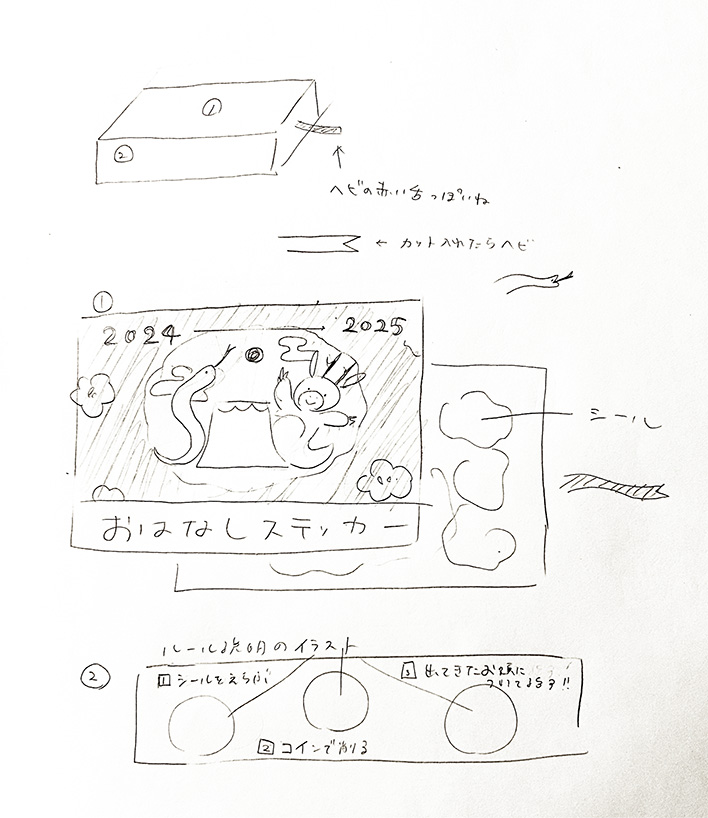 ①
②
ヘビの赤い舌っぽいね
← カット入れたらヘビ
①
2024 → 2025
シール
おはなしステッカー
ルール説明のイラスト
②
1 シールをえらぶ
2 コインで削る
3 出てきたお題に
!!